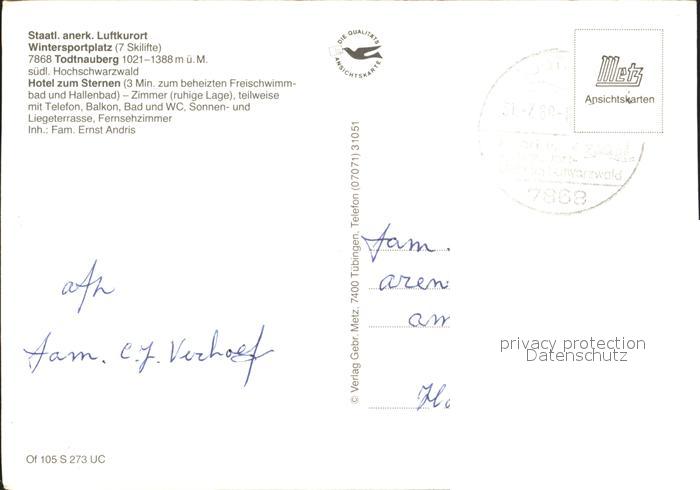 Staatl. anerk. Luftkurort
Wintersportplatz (7 Skilifte)
7868 Todtnauberg 1021–1388 m ü. M.
südl. Hochschwarzwald
Hotel zum Sternen (3 Min. zum beheizten Freischwimm-
bad und Hallenbad) – Zimmer (ruhige Lage), teilweise
mit Telefon, Balkon, Bad und WC, Sonnen- und
Liegeterrasse, Fernsehzimmer
Inh.: Fam. Ernst Andris
DIE QUALITÄTS
ANSICHTSKARTE
Metz
Ansichtskarten
7868
© Verlag Gebr. Metz, 7400 Tübingen, Telefon (07071) 31051
afz
fam. C.J. Verhoef
fam.
aren
am
Ho
privacy protection
Datenschutz
Of 105 S 273 UC